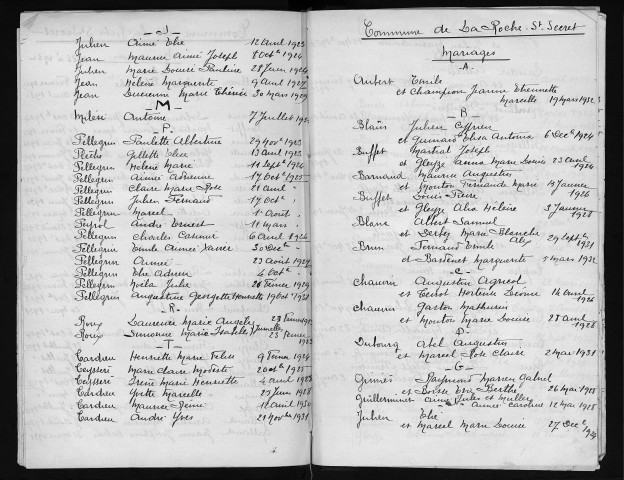 - J -
Julien Aimé Elie 12 avril 1923
Jean Maurice Aimé Joseph 8 Oct 1924
Julien Marie Louise Pauline 28 Juin 1924
Jean Hélène Marguerite 9 avril 1927
Jean Lucienne Marie Thérèse 30 mars 1929
- M -
Milési Antoine 7 Juillet
- P -
Pellegrin Paulette Albertine 29 Nov 1923
Gillette 13 avril 1923
Pellegrin Hélène Marie 11 Sept 1924
Pellegrin Aimée Adrienne 17 Oct 1925
Pellegrin Claire Marie Rose 21 avril "
Pellegrin Julien Fernand 17 Oct "
Pellegrin Marcel 1er Août "
Peyrol André Ernest 11 mars "
Pellegrin Charles Casimir 6 avril 1926
Pellegrin Emile Aimé Xavier 30 Dec "
Pellegrin Aimée 23 août 1927
Pellegrin Elie Adrien 4 Oct "
Pellegrin Julie 20 Février 1929
Pellegrin Augustine Georgette Henriette 19 Oct
- R -
Roux Laurence Marie Angèle 23 Février
Roux Simonne Marie Isabelle Jumelles 23 Février
- T -
Tardieu Henriette Marie 9 Février 1924
Teyssère Marie Claire Modeste 20 Oct 1925
Teyssère Irène Marie Henriette 4 avril
Tardieu Yvette Marcelle 23 Juin 1928
Tardieu Maurice 12 avril 1930
Tardieu André Yves 21 Nov 1931
Commune de La Roche-St-Secret
Mariages
- A -
Autert Emile
et Champion Jeanne Etiennette
Marcelle 19 mars 1932
- B -
Blaïs Julien Cyprien
et Elisa Antonia 6 Dec 1924
Buffet Martial Joseph
et Gleyze Anna Marie Louise 23 avril
1924
Barnaud Maurice Augustin
et Mouton Fernande Marie 14 Janvier
1926
Buffet Louis Pierre
et Gleyze Alia Hélène 3 Janvier
1928
Blanc Albert Samuel
et Marie Blanche 29 Sept
1931
Brun Fernand Emile
et Bardenet Marguerite 5 mars 1932
- C -
Chauvin Augustin Agricol
et Hortense Léonie 14 avril
1926
Chauvin Gaston Mathurin
et Mouton Marie Louise 28 avril
1928
- D -
Dubourg Abel Augustin
et Marcel Rose Claire 2 mai 1931
- G -
Raymond Marien Gabriel
et Berthe 26 mai 1928
Guillerminet Aimé Jules et
Aimée Caroline 12 mai 1928
Julien Elie
et Marcel Marie Louise 27 Dec
1924